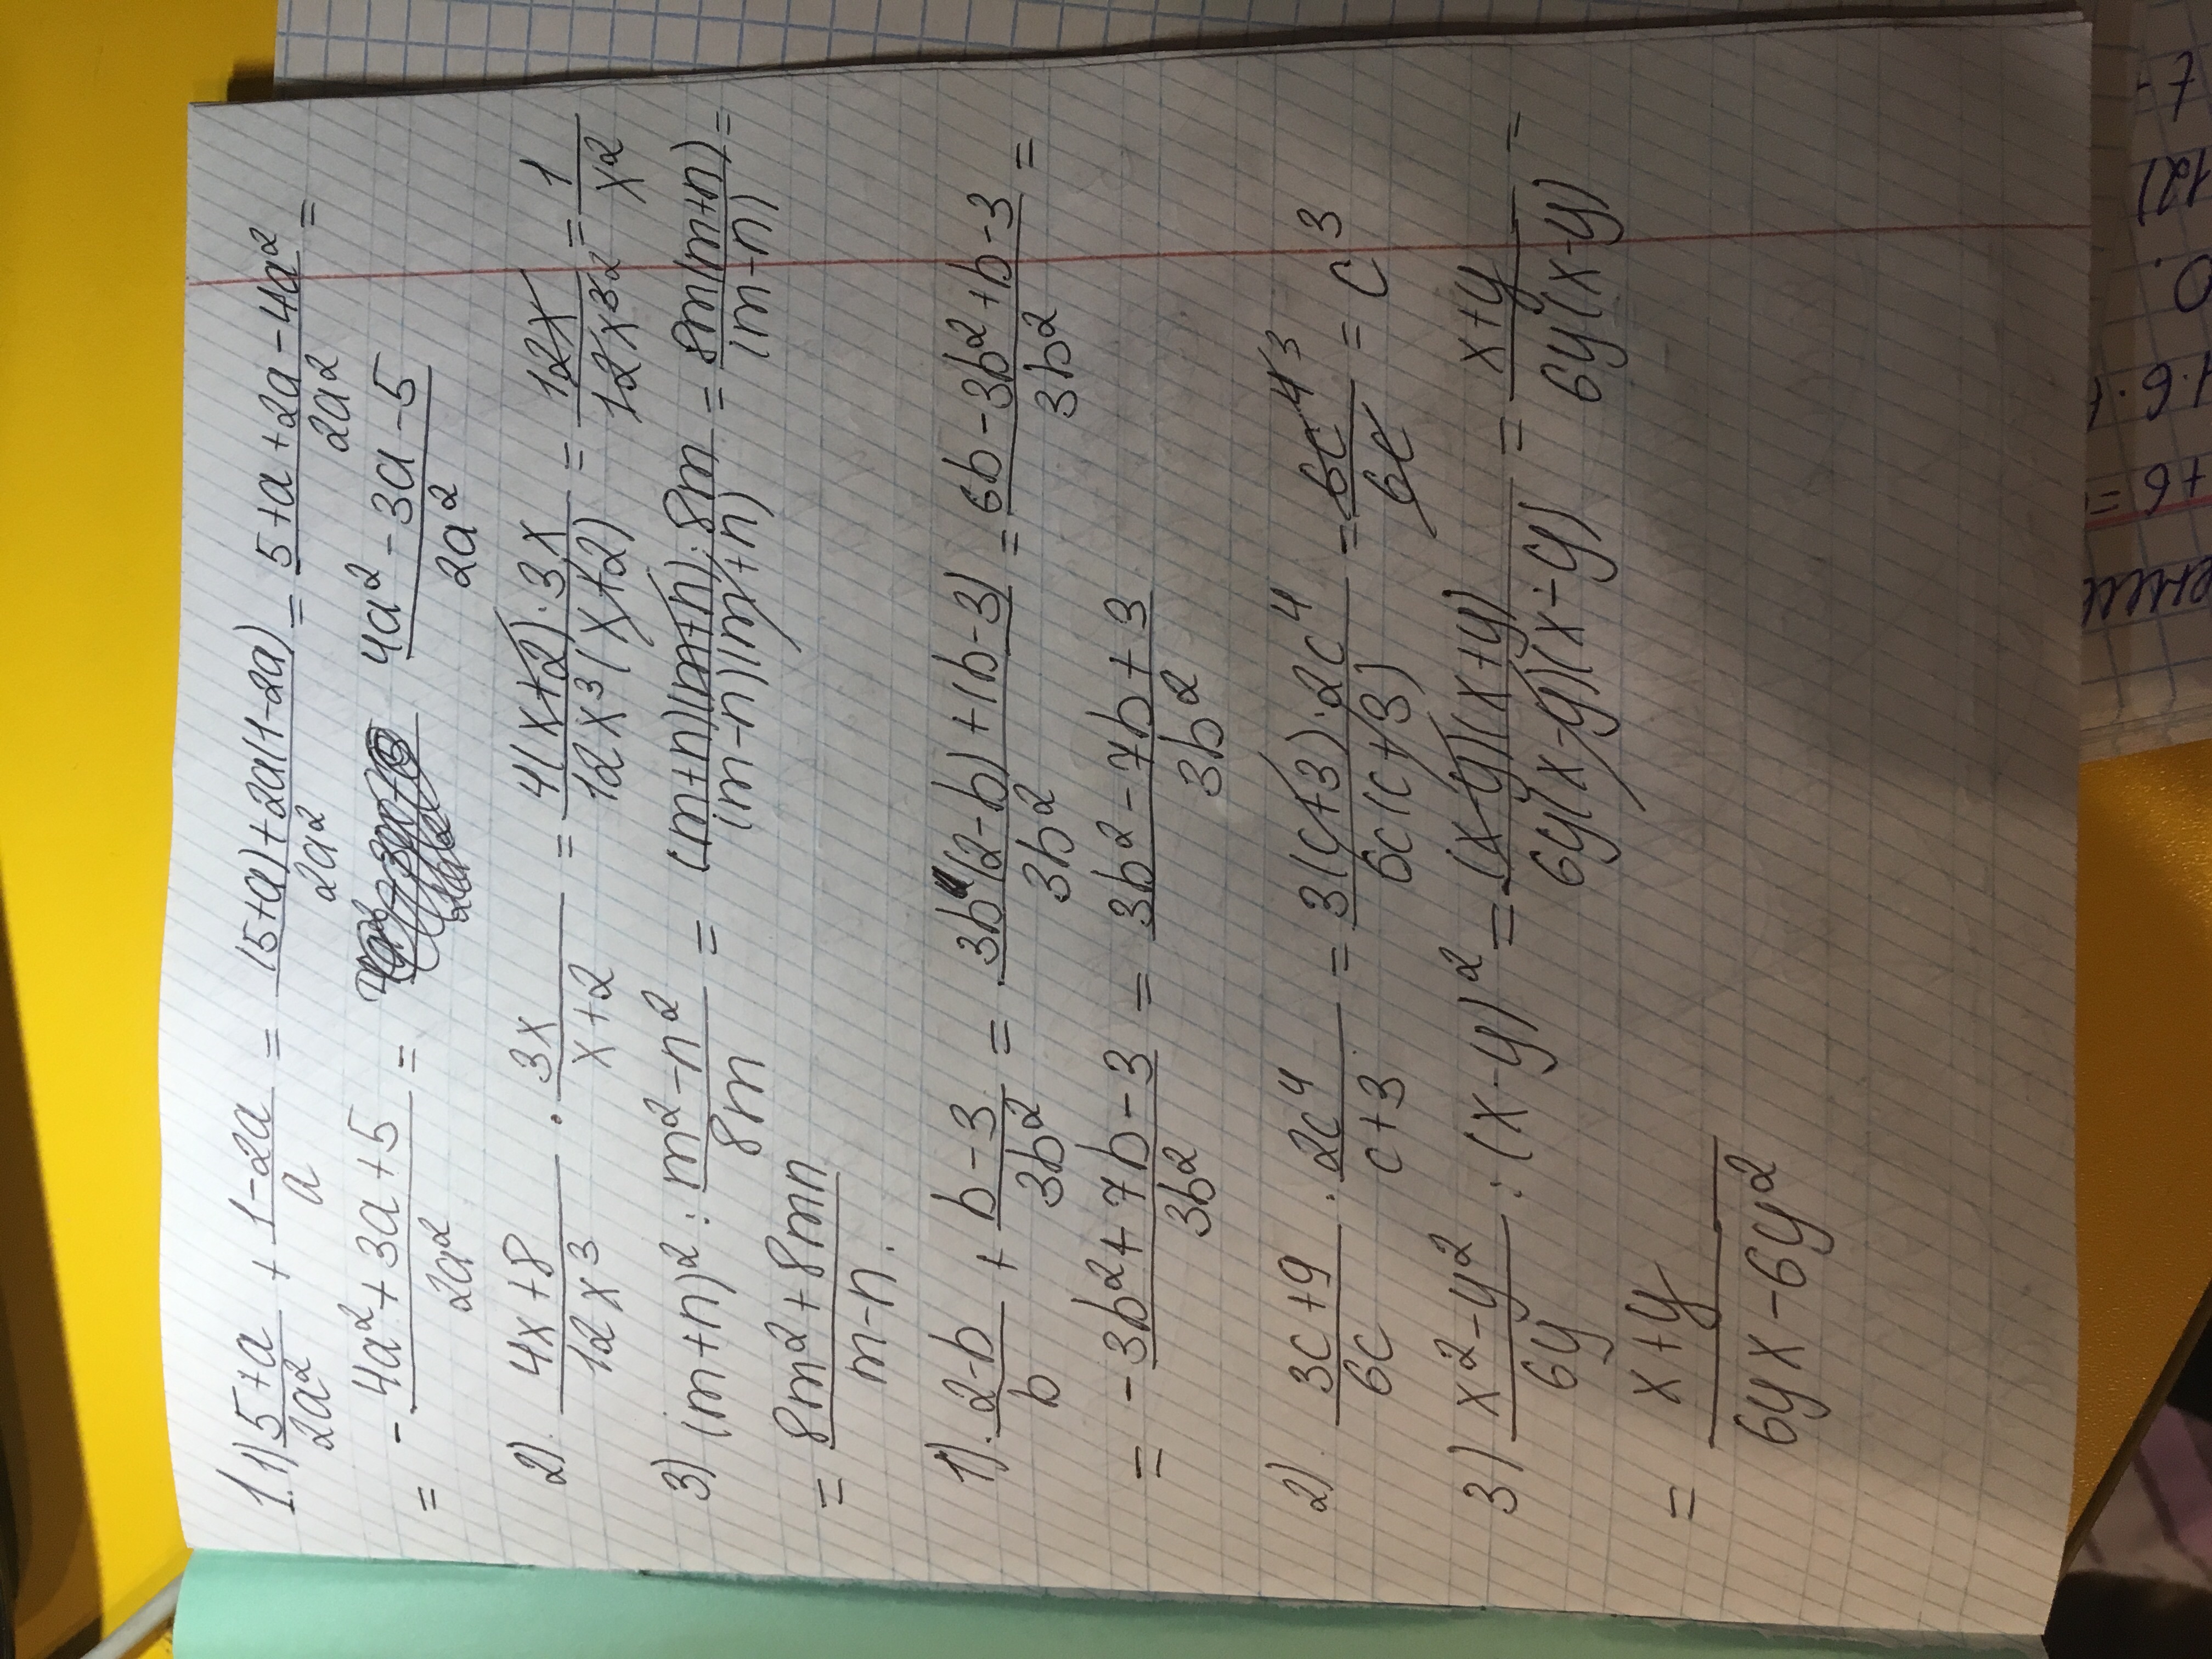 1. 1) (5+a)/(2a²) + (1-2a)/a = ((5+a)+2a(1-2a))/(2a²) = (5+a+2a-4a²)/(2a²) =
= - (4a²+3a+5)/(2a²) = (4a²-3a-5)/(2a²)
2). (4x+8)/(12x³) · (3x)/(x+2) = (4(x+2)·3x)/(12x³(x+2)) = (12x)/(12x³ ²) = 1/x²
3) (m+n)² : (m²-n²)/(8m) = ((m+n)(m+n)·8m)/((m-n)(m+n)) = (8m(m+n))/(m-n) =
= (8m²+8mn)/(m-n).
1). (2-b)/b + (b-3)/(3b²) = (3b(2-b)+(b-3))/(3b²) = (6b-3b²+b-3)/(3b²) =
= (-3b²+7b-3)/(3b²) = (3b²-7b+3)/(3b²)
2). (3c+9)/(6c) · (2c⁴)/(c+3) = (3(c+3)·2c⁴)/(6c(c+3)) = (6c⁴ ³)/(6c) = c³
3) (x²-y²)/(6y) : (x-y)² = ((x-y)(x+y))/(6y(x-y)(x-y)) = (x+y)/(6y(x-y)) =
= (x+y)/(6yx-6y²)
7-
12)
0.
+6=